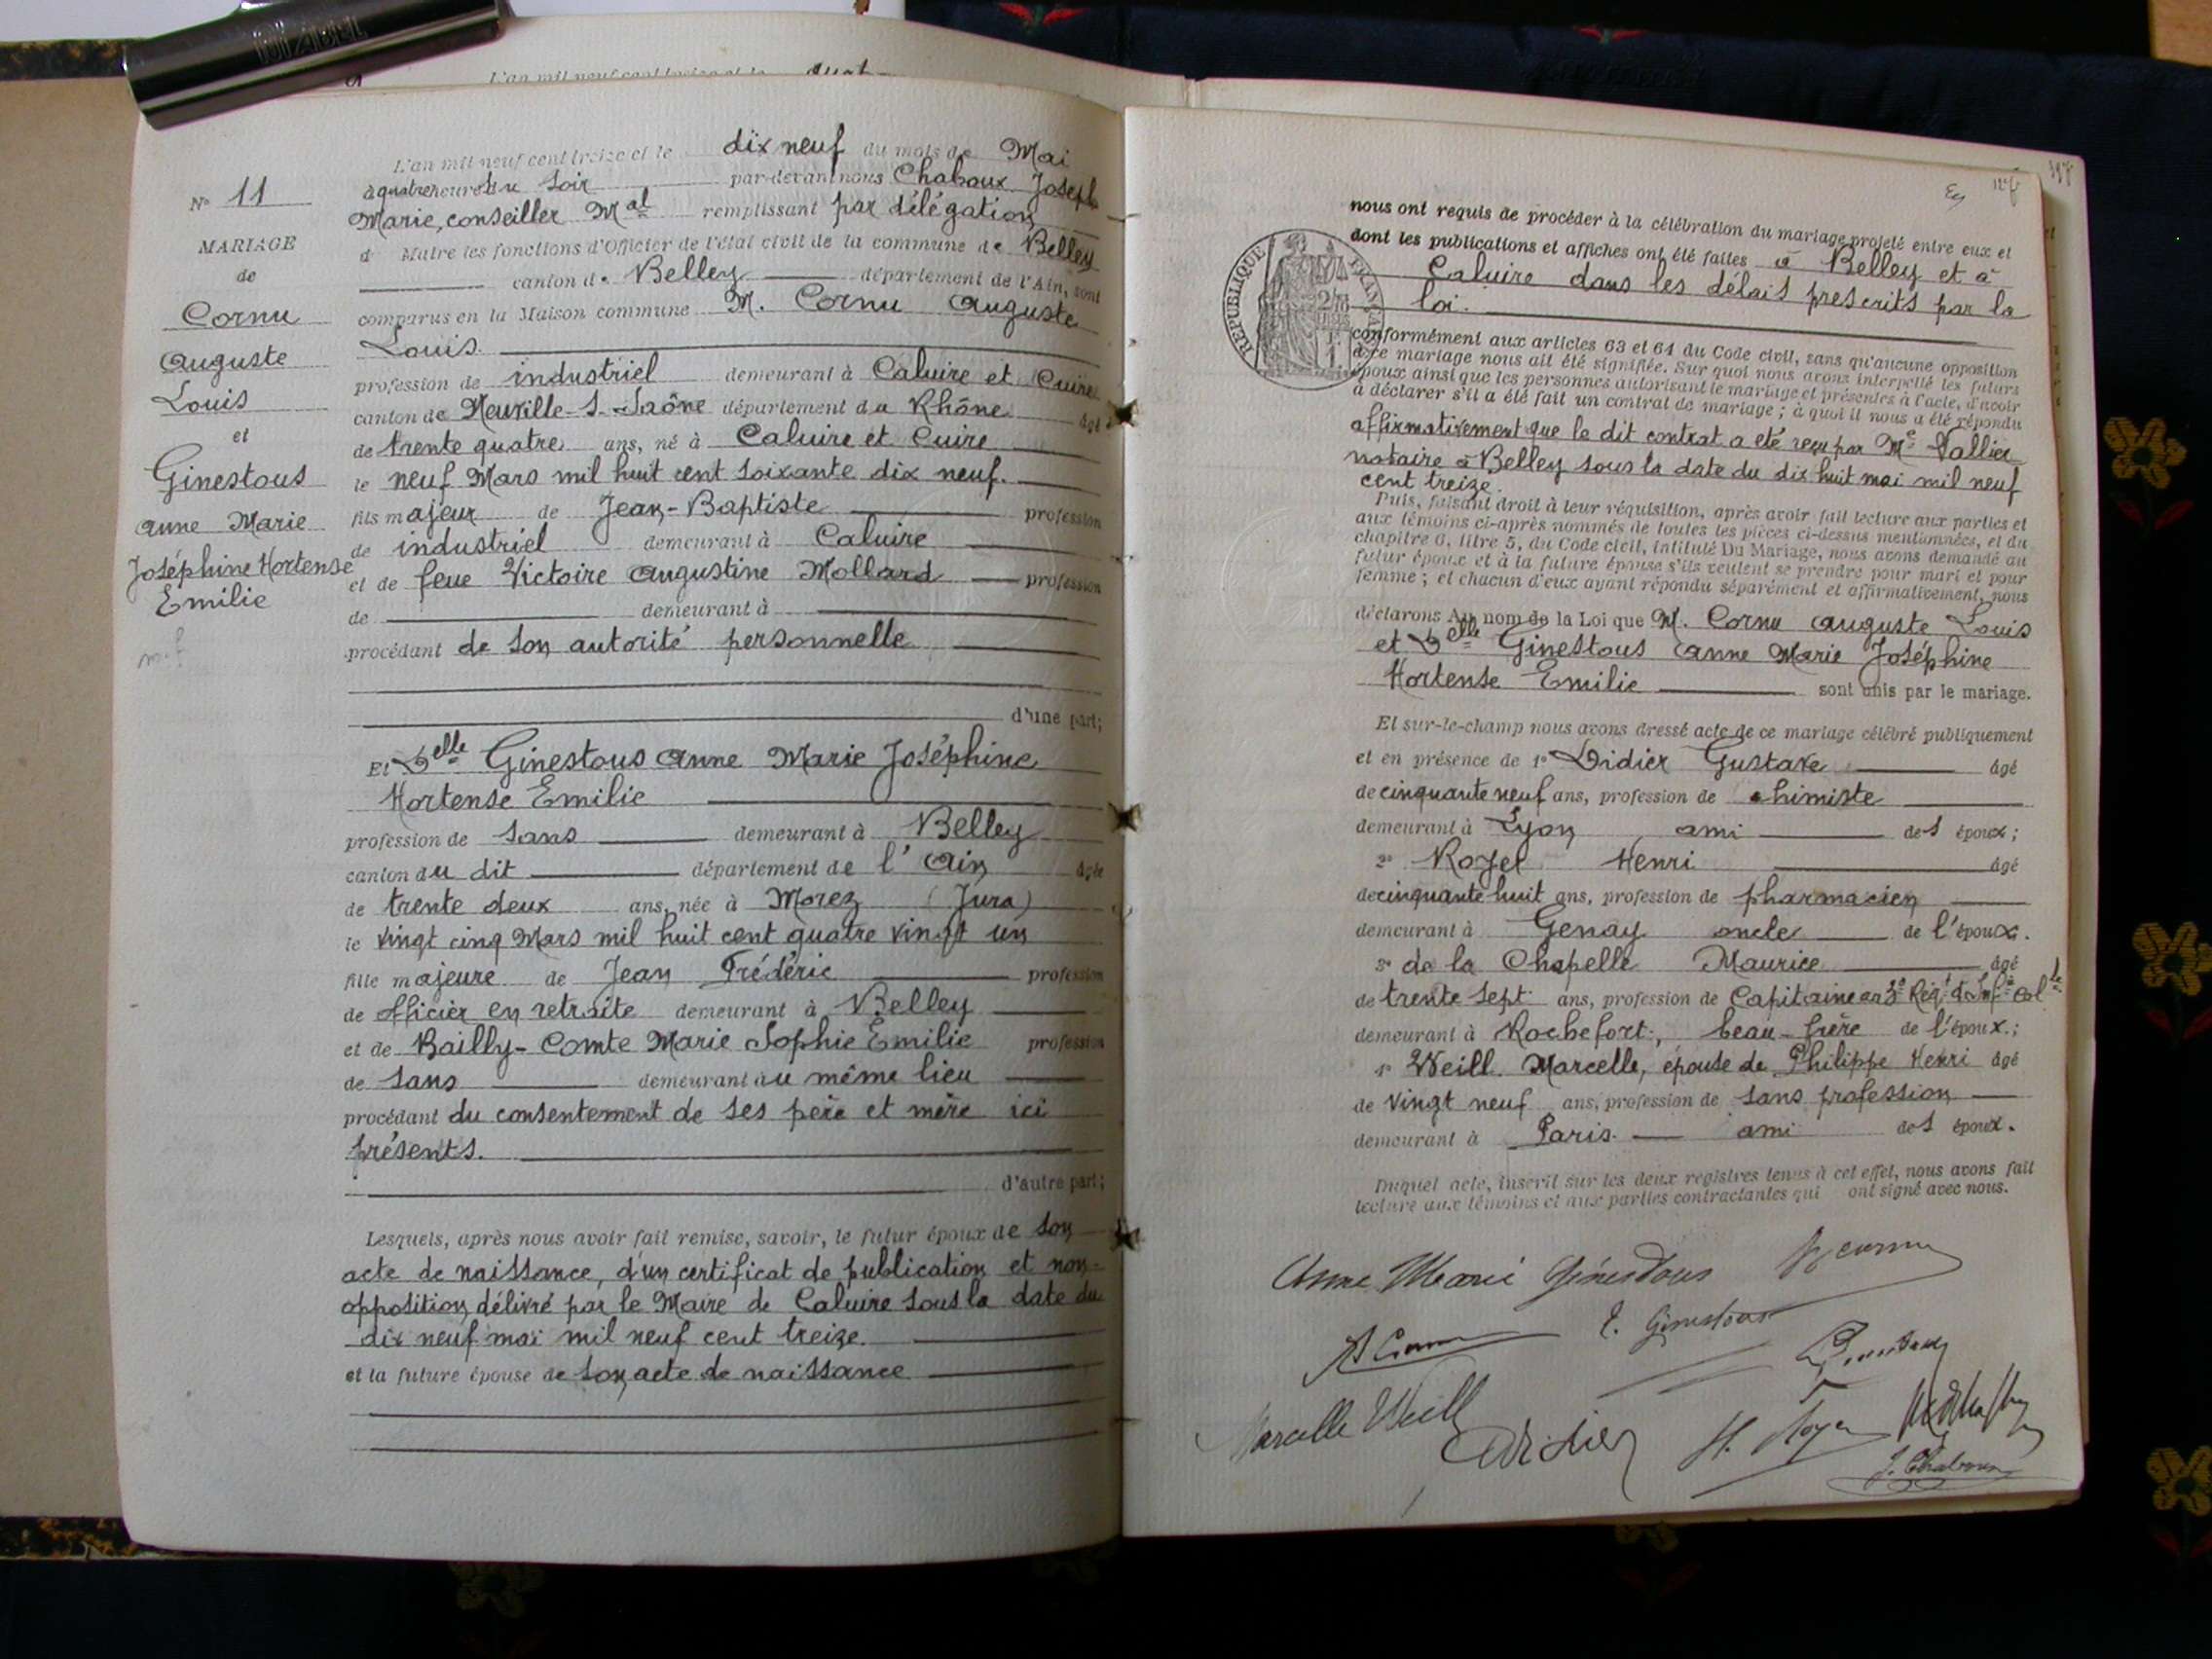 L'an mil neuf cent treize et le
N° 11
MARIAGE
de
Cornu
Auguste
Louis
et
Ginestous
Anne Marie
Joséphine Hortense
Emilie
L'an mil neuf cent treize et le dix neuf du mois de Mai
à quatre heures du soir par-devant nous Chaboux Joseph
Marie, conseiller Mal remplissant par délégation
de Maire les fonctions d'Officier de l'état civil de la commune de Belley
canton de Belley département de l'Ain, sont
comparus en la Maison commune M. Cornu Auguste
Louis.
profession de industriel demeurant à Caluire et Cuire
canton de Neuville-s-Saône département du Rhône âgé
de trente quatre ans, né à Caluire et Cuire
le neuf Mars mil huit cent soixante dix neuf.
fils majeur de Jean-Baptiste profession
de industriel demeurant à Caluire
et de feue Victoire Augustine Mollard profession
de demeurant à
procédant de son autorité personnelle
d'une part;
Et Delle Ginestous Anne Marie Joséphine
Hortense Emilie
profession de sans demeurant à Belley
canton du dit département de l'Ain âgée
de trente deux ans, née à Morez (Jura)
le vingt cinq Mars mil huit cent quatre vingt un
fille majeure de Jean Frédéric profession
de officier en retraite demeurant à Belley
et de Bailly-Comte Marie Sophie Emilie profession
de sans demeurant au même lieu
procédant du consentement de ses père et mère ici
présents.
d'autre part;
Lesquels, après nous avoir fait remise, savoir, le futur époux de son
acte de naissance, d'un certificat de publication et non-
opposition délivré par le Maire de Caluire sous la date du
dix neuf mai mil neuf cent treize.
et la future épouse de son acte de naissance
RÉPUBLIQUE FRANÇAISE
nous ont requis de procéder à la célébration du mariage projeté entre eux et
dont les publications et affiches ont été faites à Belley et à
Caluire dans les délais prescrits par la
loi.
conformément aux articles 63 et 64 du Code civil, sans qu'aucune opposition
à ce mariage nous ait été signifiée. Sur quoi nous avons interpellé les futurs
époux ainsi que les personnes autorisant le mariage et présentes à l'acte, d'avoir
à déclarer s'il a été fait un contrat de mariage ; à quoi il nous a été répondu
affirmativement que le dit contrat a été reçu par Me Vallier
notaire à Belley sous la date du dix huit mai mil neuf
cent treize.
Puis, faisant droit à leur réquisition, après avoir fait lecture aux parties et
aux témoins ci-après nommés de toutes les pièces ci-dessus mentionnées, et du
chapitre 6, titre 5, du Code civil, intitulé Du Mariage, nous avons demandé au
futur époux et à la future épouse s'ils veulent se prendre pour mari et pour
femme ; et chacun d'eux ayant répondu séparément et affirmativement, nous
déclarons Au nom de la Loi que M. Cornu Auguste Louis
et Delle Ginestous Anne Marie Joséphine
Hortense Emilie sont unis par le mariage.
Et sur-le-champ nous avons dressé acte de ce mariage célébré publiquement
et en présence de 1° Didier Gustave âgé
de cinquante neuf ans, profession de chimiste
demeurant à Lyon, ami des époux;
2° Royer Henri âgé
de cinquante huit ans, profession de pharmacien
demeurant à Genay oncle de l'époux.
3° de la Chapelle Maurice âgé
de trente sept ans, profession de Capitaine au 3e Régt d'Infie Colle
demeurant à Rochefort, beau-frère de l'époux;
4° Weill Marcelle, épouse de Philippe Henri âgé
de vingt neuf ans, profession de sans profession
demeurant à Paris. ami des époux.
Duquel acte, inscrit sur les deux registres tenus à cet effet, nous avons fait
lecture aux témoins et aux parties contractantes qui ont signé avec nous.
Anne Marie Ginestous
A Cornu E. Ginestous
Marcelle Weill Didier H. Royer
J. Chaboux